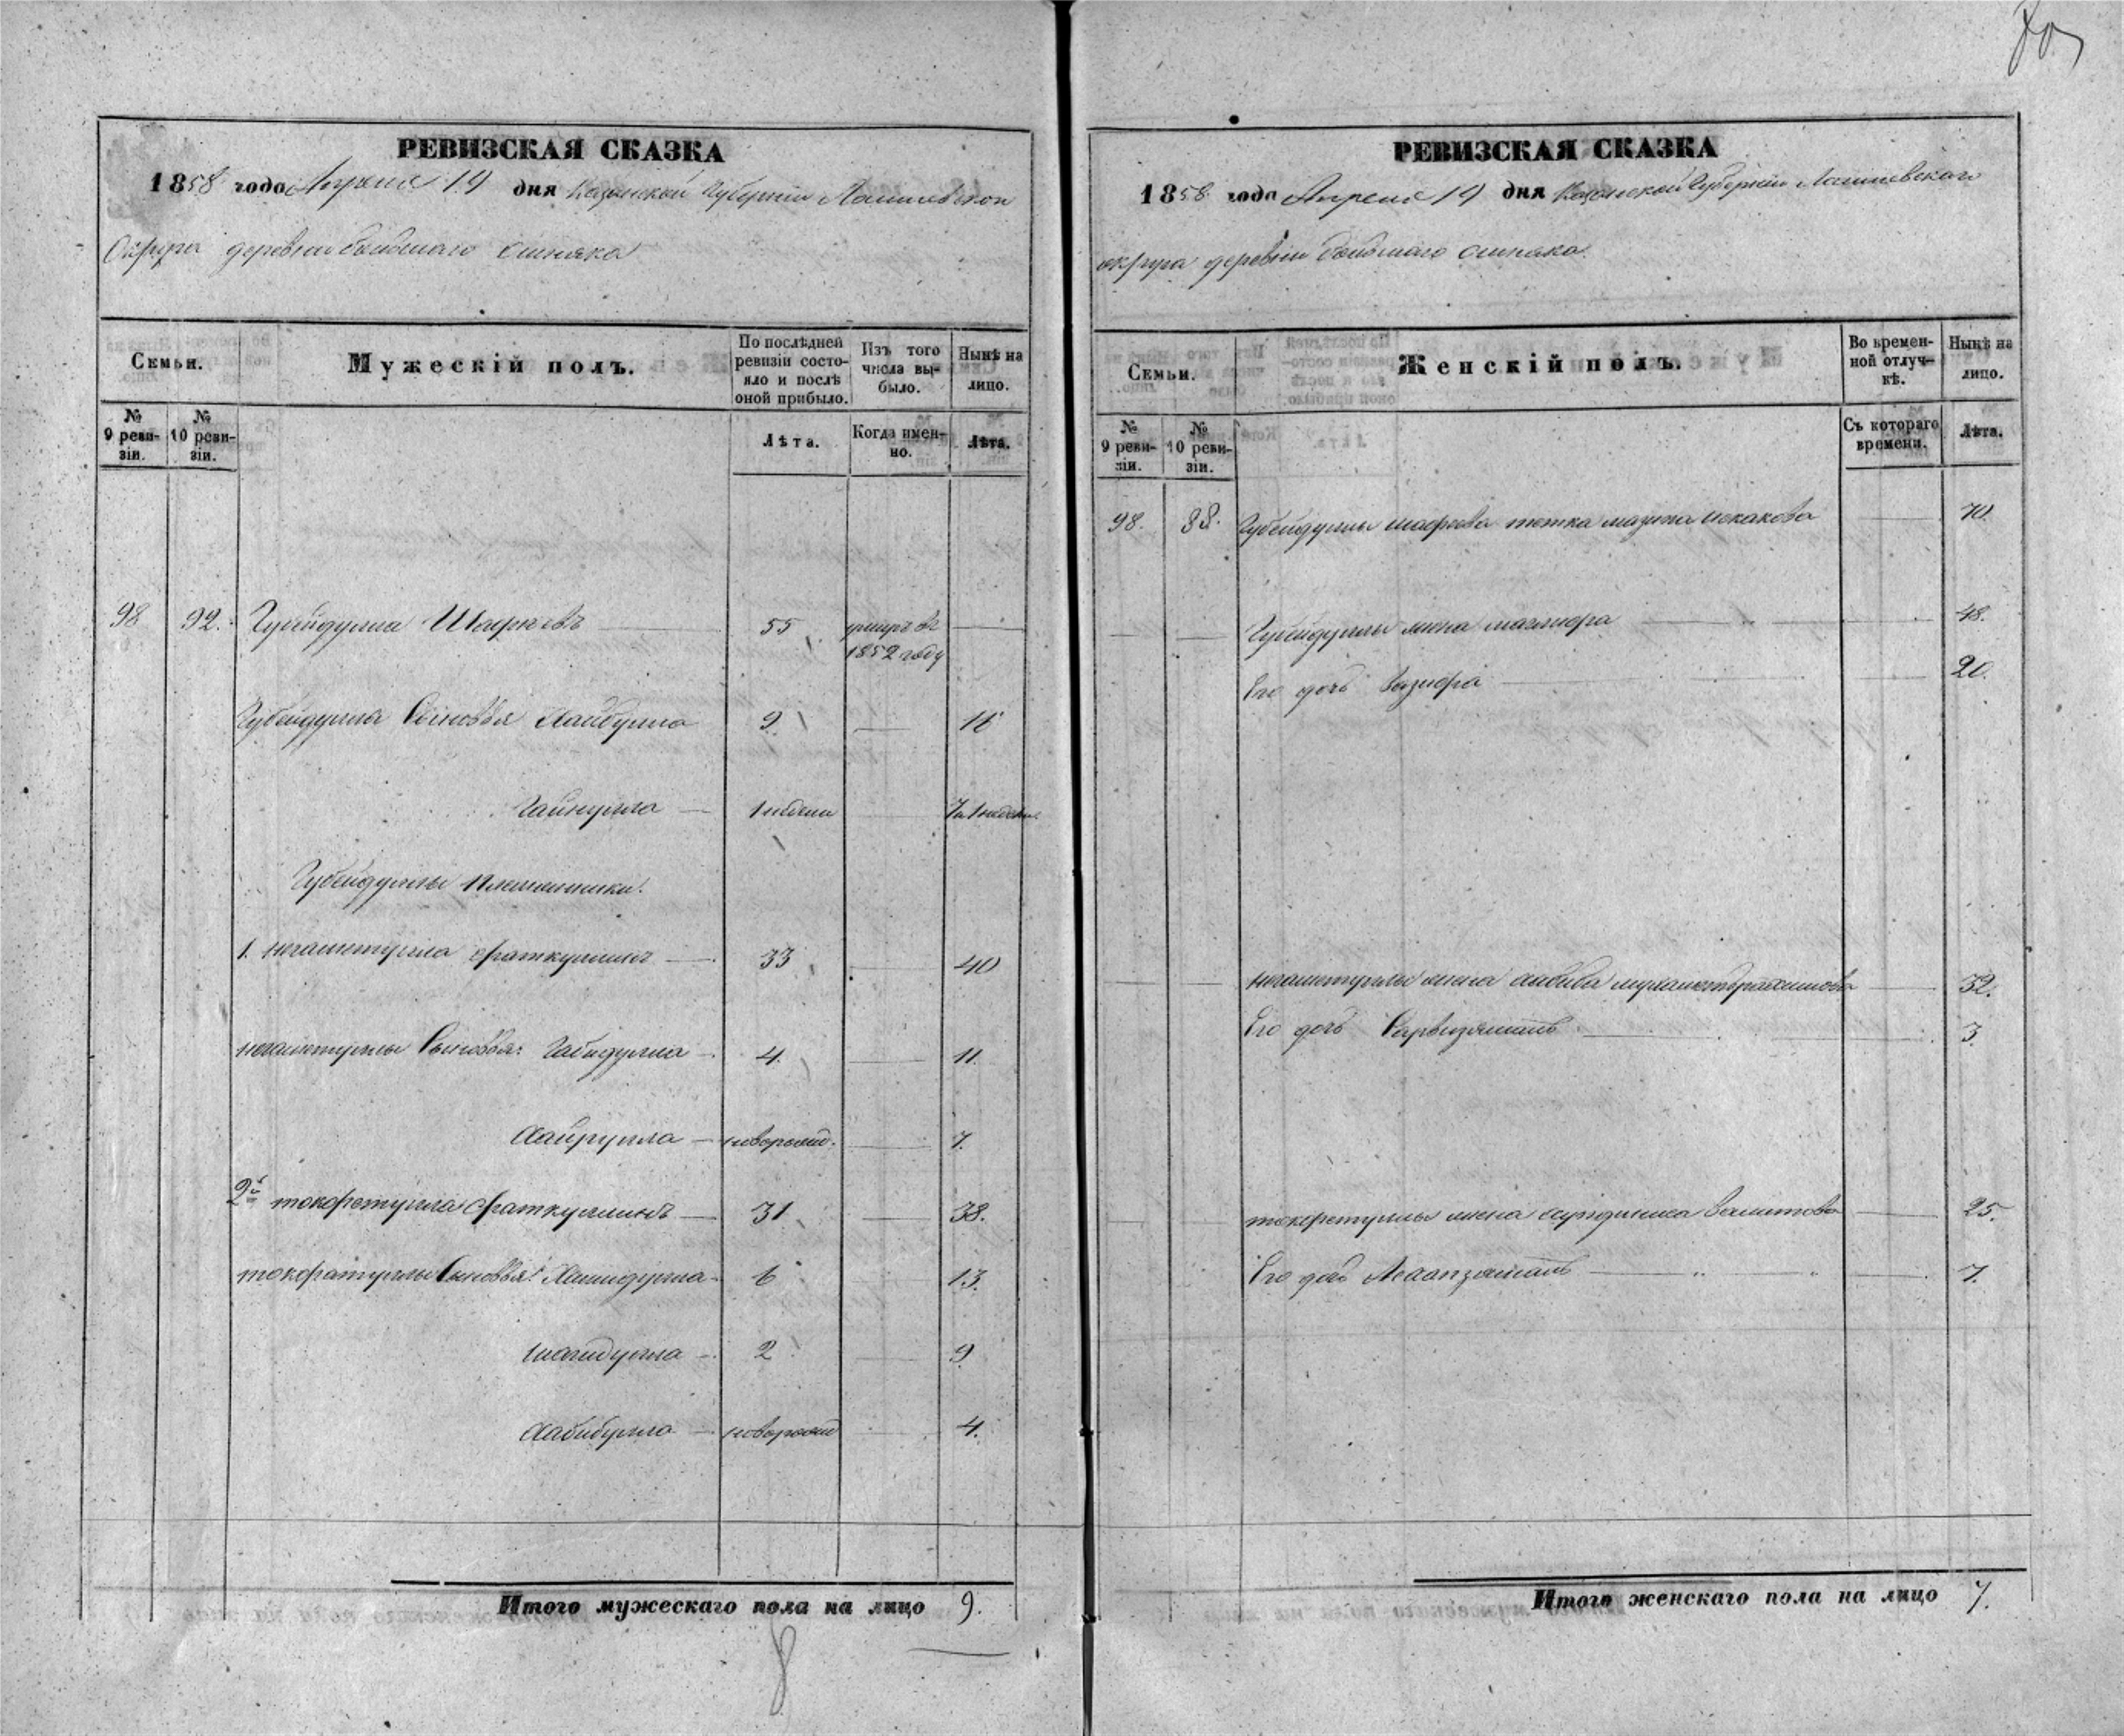 80
РЕВИЗСКАЯ СКАЗКА
1858 года Апреля 19 дня Казанской Губернии Лаишевской
Округи деревни большаго
Семьи.
Мужескій полъ.
По послѣдней ревизіи состо-
яло и послѣ оной прибыло.
Изъ того числа вы-
было.
Нынѣ на лицо.
№ 9 реви-
зіи.
№ 10 реви-
зіи.
Лѣта.
Когда имен-
но.
Лѣта.
98 92. Губейдулла Шафѣевъ 55 умеръ въ
1852 году
Губейдуллы Сыновья Хайбулла 9 16
Гайнулла 1 недели 7 и 1 недели
Губейдуллы племянники.
1. негаметулла фаткуллинъ 33 40
негаметуллы Сыновья: Габидулла 4. 11.
Хайрулла новорожд. 7.
2й токфетулла фаткуллинъ 31 38.
токфатуллы Сыновья: Хамидулла 6 13.
шагидулла 2 9
Хабибулла новорожд 4.
Итого мужескаго пола на лицо 9.
8
РЕВИЗСКАЯ СКАЗКА
1858 года Апреля 19 дня Казанской Губернии Лаишевскаго
округа деревни большаго
Семьи.
Женскій полъ.
Во времен-
ной отлуч-
кѣ.
Нынѣ на лицо.
№ 9 реви-
зіи.
№ 10 реви-
зіи.
Съ котораго времени.
Лѣта.
98. 88. Губейдуллы шафеева тетка искакова 70.
Губейдуллы жена 48.
Его дочь 20.
негаметуллы жена хабиба 32.
Его дочь 3.
токфетуллы жена валитова 25.
Его дочь 7.
Итого женскаго пола на лицо 7.